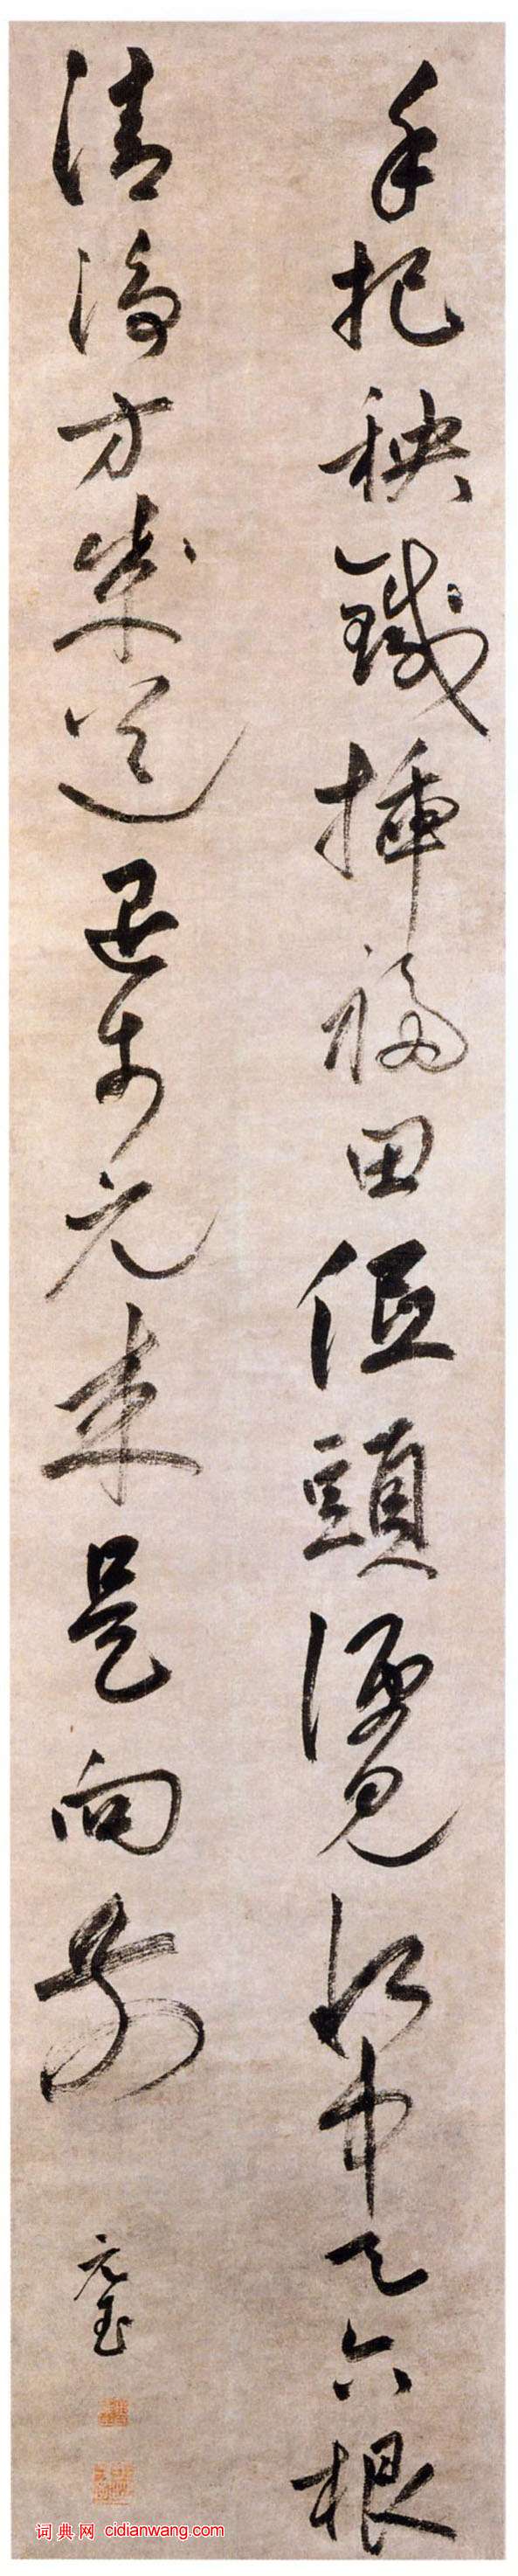 手把秧鍼插福田低頭便見水中天六根
清淨方成道退步元来是向前
元玉
词典网 cidianwang.com